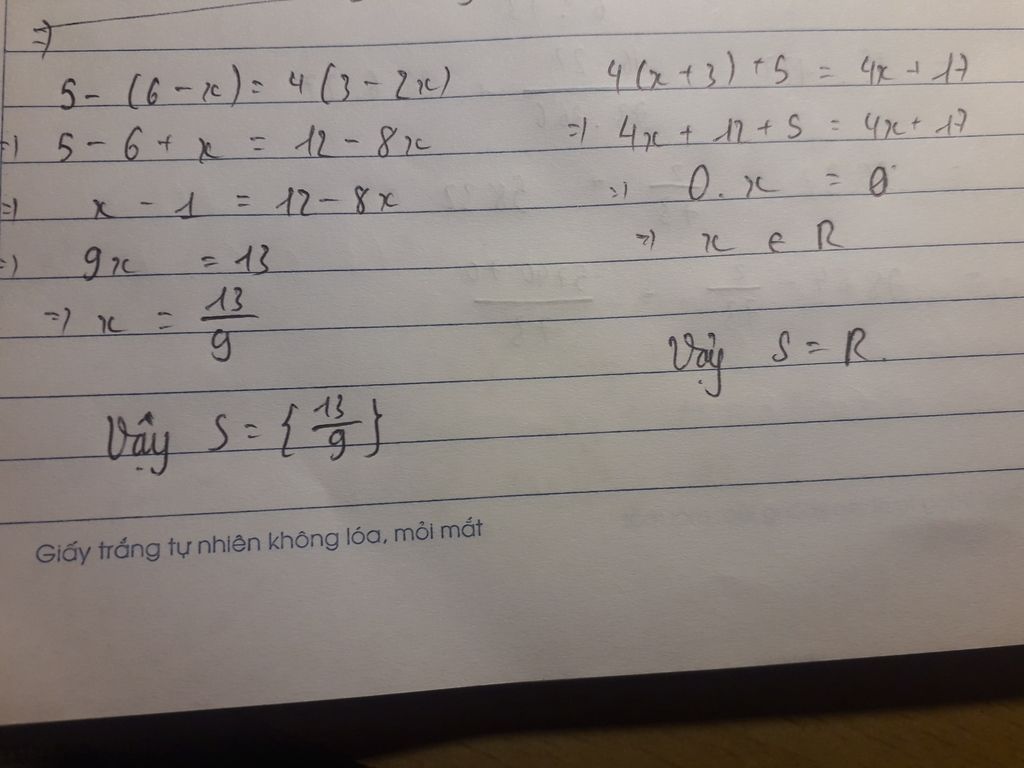 =)
5 - (6 - x) = 4(3 - 2x)
=) 5 - 6 + x = 12 - 8x
=) x - 1 = 12 - 8x
=) 9x = 13
=) x = 13/9
Vậy S = { 13/9 }
4(x + 3) + 5 = 4x + 17
=) 4x + 12 + 5 = 4x + 17
=) 0. x = 0
=) x ∈ R
Vậy S = R.
Giấy trắng tự nhiên không lóa, mỏi mắt